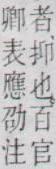 者抑也百官
卿表應劭注